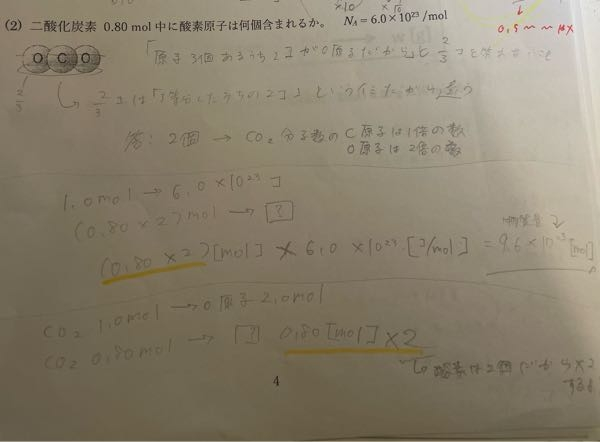 (2) 二酸化炭素 0.80 mol 中に酸素原子は何個含まれるか。 NA=6.0×10²³/mol
0.5〜
O C O
「原子3個あるうち2コがO原子だから」と 2/3 コを答え
2/3
2/3 コは「等分したうちの2コ」という だから違う
答: 2個 → CO₂ 分子数の C 原子は1倍の数
O 原子は2倍の数
1.0mol → 6.0×10²³コ
(0.80×2)mol → [?]
(0.80×2)[mol] × 6.0×10²³ [コ/mol] = 9.6×10²³ [mol]
物質量
CO₂ 1.0mol → O原子 2.0mol
CO₂ 0.80mol → [?] 0.80[mol]×2
酸素は2個だから×2
する
4